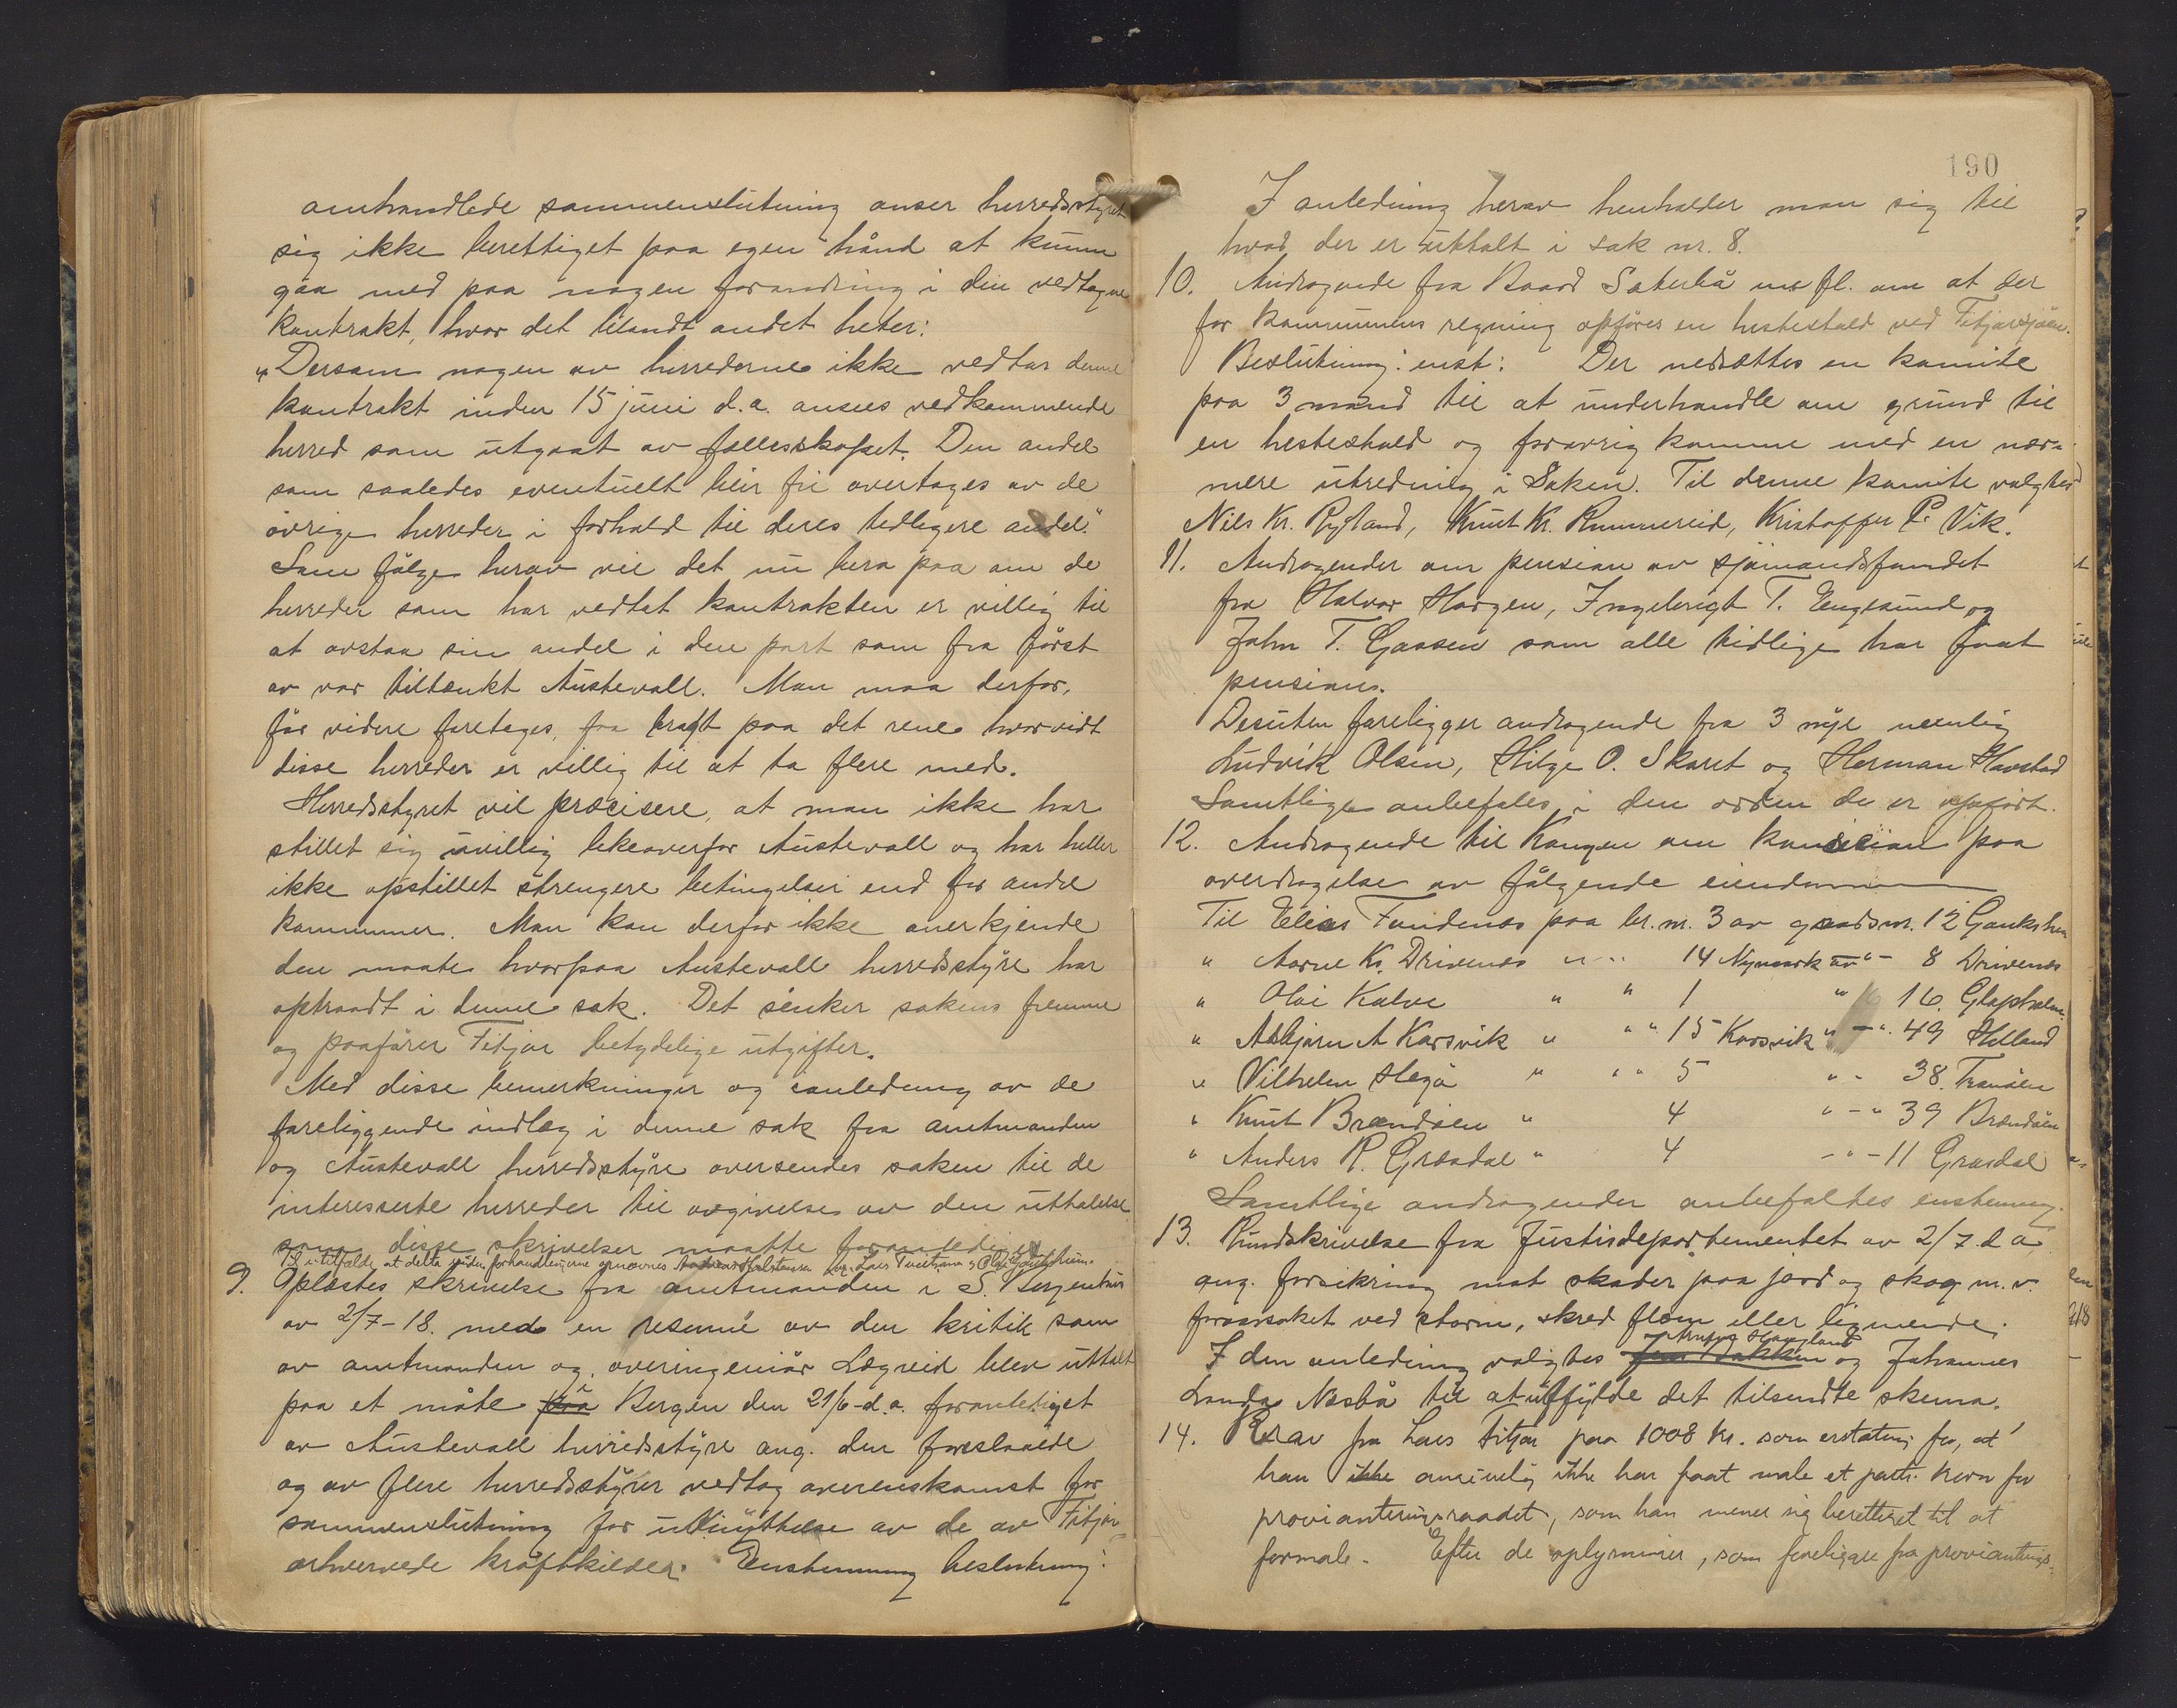 omhandlede sammenslutning anser herredsstyret
sig ikke berettiget paa egen hånd at kunne
gaa med paa nogen forandring i den vedtagne
kontrakt, hvor det blandt andet heter:
"Dersom nogen av herrederne ikke vedtar denne
kontrakt inden 15 juni d.a. ansees vedkommende
herred som utgaat av fællesskapet. Den andel
som saaledes eventuelt blir fri overtages av de
övrige herreder i forhold til deres tidligere andel."
Som fölge herav vil det nu bero paa om de
herreder som har vedtat kontrakten er villig til
at avstaa sin andel i den part som fra först
av var tiltænkt Austevoll. Man maa derfor,
för videre foretages, faa bragt paa det rene hvorvidt
disse herreder er villig til at ta flere med.
Herredsstyret vil præcisere, at man ikke har
stillet sig uvillig likeoverfor Austevoll og har heller
ikke opstillet strengere betingelser end for andre
kommuner. Man kan derfor ikke anerkjende
den maate hvorpaa Austevoll herredsstyre har
optraadt i denne sak. Det sénker sakens fremme
og paaförer Fitjar betydelige utgifter.
Med disse bemerkninger og i anledning av de
foreliggende indlæg i denne sak fra amtmanden
og Austevoll herredsstyre oversendes saken til de
interesserte herreder til avgivelse av den uttalelse
som disse skrivelser maatte foranledige
at delta i videre forhandlingerne opnævnes
9. Oplæstes skrivelse fra amtmanden i S. Bergenhus
av 2/7-18. med en resumé av den kritik som
av amtmanden og overingeniör Lægreid blev uttalt
paa et möte på Bergen den 21/6-d.a. foranlediget
av Austevoll herredsstyre ang. den foreslaaede
og av flere herredsstyrer vedtag overenskomst for
sammenslutning for utbinyttelse av de av Fitjar
erhvervede kraftkilder. Enstemmig beslutning:
190
I anledning herav henholder man sig til
hvad der er uttalt i sak nr. 8.
10. Andragende fra Baard Sæterbö m fl. om at der
for kommunens regning opföres en hestestald ved Fitjarsjöen.
Beslutning: enst: Der nedsættes en komite
paa 3 mand til at underhandle om grund til
en hestestald og forövrig komme med en nær-
mere utredning i Saken. Til denne komite valgtes
Nils Kr. Rygland, Knut Kr. Rimmereid, Kristoffer P. Vik.
11. Andragender om pension av sjömandsfondet
fra Halvor Horgen, Ingebrigt T. Engesund og
John T. Gaasen som alle tidlige har faat
pension.
Desuten foreligger andragende fra 3 nye nemlig
Ludvik Olsen, Hilge O. Skaret og Herman Havstad
Samtlige anbefales i den orden de er opfört.
12. Andragende til Kongen om koncession paa
overdragelse av fölgende eiendommer
Til Elias Tundenes paa br. nr. 3 av gaards nr. 12
" Aarne Kr. Drivenes " " 14 Nymark av " - 8 Drivenes
" Olai Kalve " " 1 " 16
" Asbjörn A Korsvik " " " 15 Korsvik " - " 49 Helland
" Vilhelm " " " 5 " - 38.
" Knut Brandöen " 4 " - " 39 Brandöen
" Anders R. Græsdal " 4 - " - 11 Græsdal
Samtlige andragender anbefaltes enstemmig.
13. Rundskrivelse fra Justisdepartementet av 2/7 d a
ang. forsikring mot skader paa jord og skog m. v.
foraarsaket ved storm, skred flom eller lignende.
I den anledning valgtes og Johannes
Landa Næsbö til at utfylde det tilsendte skema.
14. Krav fra Lars Fitjar paa 1008 Kr. som erstatning for, at
han ikke ansvarlig ikke har faat male et parti korn for
provianteringsraadet, som han mener sig berettiget til at
formale. Efter de oplysninger, som foreligger fra provianterings-